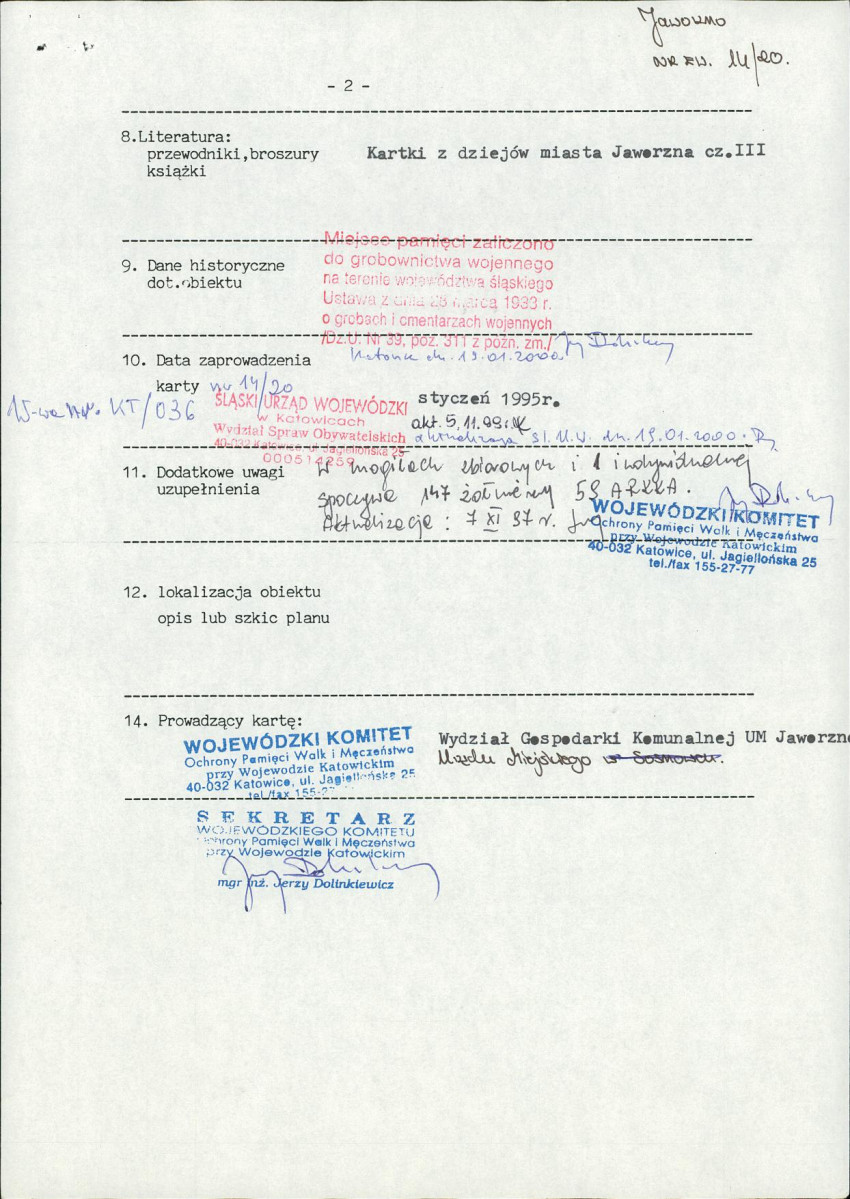 Jaworzno
NR EW. 14/20.
- 2 -
8.Literatura:
przewodniki,broszury
książki
Kartki z dziejów miasta Jaworzna cz.III
Miejsce pamięci zaliczono
do grobownictwa wojennego
na terenie województwa śląskiego
Ustawa z dnia 28 marca 1933 r.
o grobach i cmentarzach wojennych
/Dz.U. Nr 39, poz. 311 z późn. zm./
9. Dane historyczne
dot.obiektu
Katowice dn. 19.01.2000
10. Data zaprowadzenia
karty nr 14/20
W-wa KT/036
styczeń 1995r.
akt. 5.11.99r.
aktualizacja Śl.U.W. dn. 19.01.2000.
ŚLĄSKI URZĄD WOJEWÓDZKI
w Katowicach
Wydział Spraw Obywatelskich
40-032 Katowice, ul. Jagiellońska 25
000514259
11. Dodatkowe uwagi
uzupełnienia
W mogiłach zbiorowych i 1 indywidualnej
spoczywa 147 żołnierzy 59 ARKKA.
Aktualizacja: 7 XI 97 r.
WOJEWÓDZKI KOMITET
Ochrony Pamięci Walk i Męczeństwa
przy Wojewodzie Katowickim
40-032 Katowice, ul. Jagiellońska 25
tel./fax 155-27-77
12. lokalizacja obiektu
opis lub szkic planu
14. Prowadzący kartę:
Wydział Gospodarki Komunalnej UM Jaworzno
Miejskiego w Sosnowcu.
WOJEWÓDZKI KOMITET
Ochrony Pamięci Walk i Męczeństwa
przy Wojewodzie Katowickim
40-032 Katowice, ul. Jagiellońska 25
tel./fax 155-27
SEKRETARZ
WOJEWÓDZKIEGO KOMITETU
Ochrony Pamięci Walk i Męczeństwa
przy Wojewodzie Katowickim
mgr inż. Jerzy Dolinkiewicz